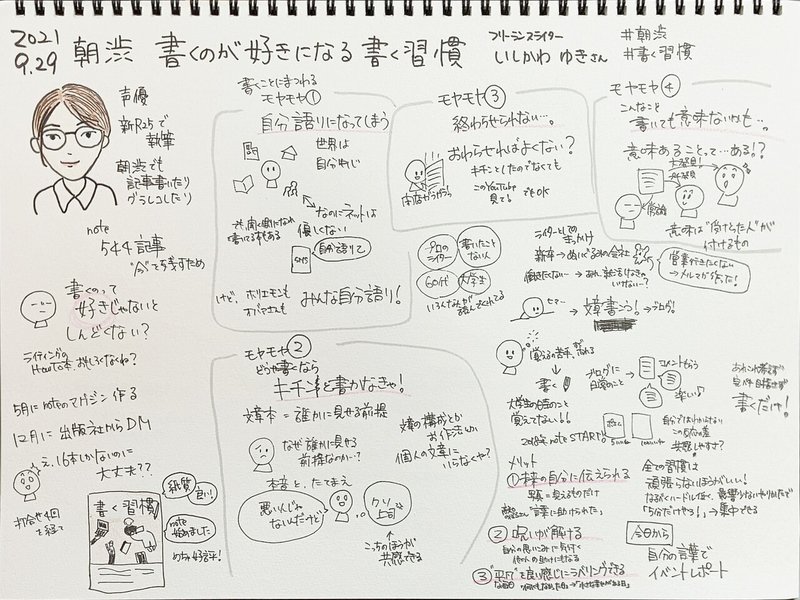 2021
9.29
朝渋 書くのが好きになる書く習慣
フリーランスライター
いしかわ ゆきさん
#朝渋
#書く習慣
声優
新R25で
執筆
朝渋でも
記事書いたり
グラレコしたり
note
544記事
"今"を残すため
書くのって
好きじゃないと
しんどくない?
ライティングの
HowTo本、おもしろくなくね?
5月にnoteのマガジン作る
12月に出版社からDM
え、16本しかないのに
大丈夫??
打合せ4回
を経て
書く習慣
紙質
良い!
note
始めました
めちゃ好評!
書くことにまつわる
モヤモヤ①
自分語りになってしまう
世界は
自分
なのにネットは
優しくない
SNS
自分語りで
けど、ホリエモンも
オバマさんも
みんな自分語り!
モヤモヤ②
どうせ書くなら
キチンと書かなきゃ!
文章本=誰かに見せる前提
なぜ誰かに見せる
前提なのか…?
文章の構成とか
お作法は
個人の文章に
いらなくね?
本音と、たてまえ
悪い人じゃ
ないんだけど
クソ
上司
こっちのほうが
共感できる
モヤモヤ③
終わらせられない…。
おわらせればよくない?
キチンとしたのでなくても
このYouTube
見てる でもOK
本店からがら
プロの
ライター
書いたこと
ない人
60代
大学生
いろんな人が読んでくれてる
モヤモヤ④
こんなこと
書いても意味ないかも…。
意味あることって…ある!?
大発見!
再発見
意味は"受けとった人"が
付けるもの
ライターとしての
きっかけ
新卒→ぬいぐるみの会社
働きたくない→あれ、就活しなきゃ
いけない…?
営業行きたくない
→メルマガ作った!
→文章書こう!→ブログ!
覚えるの苦手、忘れる
書く
ブログに
日常のこと
コメントもらう
楽しい♪
大学生の日のこと
覚えてない!!
2018年 note START!
自分ではわからない
共感しやすさ?
書くだけ!
メリット
①未来の自分に伝えられる
写真…見えるものだけ
"言葉に助けられた"
②呪いが解ける
自分の思いこみに気付く
他の人の助けにもなる
③"平凡"を良い感じにラベリングできる
な毎日
全ての習慣は
頑張らないほうがいい!
なるべくハードル低く、影響少ないやりかたで
「5分だけやろ!」→集中できる
今日から
自分の言葉で
イベントレポート